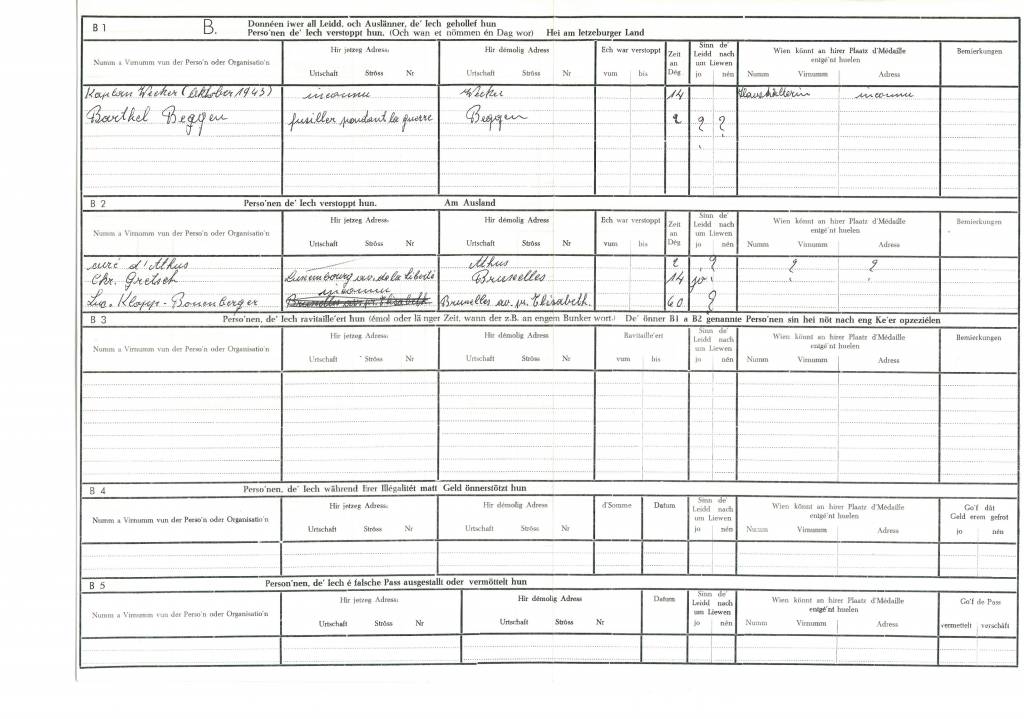 B 1 B. Donnéen iwer all Leidd, och Auslänner, de' Iech gehollef hun
Perso'nen de' Iech verstoppt hun. (Och wan et nömmen én Dag wor) Hei am letzeburger Land
Numm a Virnumm vun der Perso'n oder Organisatio'n
Hir jetzeg Adress:
Urtschaft Ströss Nr
Hir démolig Adress:
Urtschaft Ströss Nr
Ech war verstoppt
vum bis
Zeit an Dég
Sinn de' Leidd nach um Liewen
jo nén
Wien könnt an hirer Plaatz d'Médaille entgé'nt huelen
Numm Virnumm Adress
Bemierkungen
Kaplan Wecker (Oktober 1943) inconnu Wecker 14 Haushälterin inconnu
Barthel Beggen fusiller pendant la guerre Beggen 2 ? ?
B 2 Perso'nen de' Iech verstoppt hun. Am Ausland
Numm a Virnumm vun der Perso'n oder Organisatio'n
Hir jetzeg Adress:
Urtschaft Ströss Nr
Hir démolig Adress:
Urtschaft Ströss Nr
Ech war verstoppt
vum bis
Zeit an Dég
Sinn de' Leidd nach um Liewen
jo nén
Wien könnt an hirer Plaatz d'Médaille entgé'nt huelen
Numm Virnumm Adress
Bemierkungen
curé d'Athus Athus 2 ? ? ?
Chr. Gretsch Luxembourg av. de la Liberté Bruxelles 14 jo " "
inconnu
Klopp-Bonenberger Bruxelles av. pr. Elisabeth. 60 ?
B 3 Perso'nen, de' Iech ravitaille'ert hun (émol oder länger Zeit, wann der z.B. an engem Bunker wort.) De' önner B1 a B2 genannte Perso'nen sin hei nöt nach eng Ke'er opzeziélen
Numm a Virnumm vun der Perso'n oder Organisatio'n
Hir jetzeg Adress:
Urtschaft Ströss Nr
Hir démolig Adress:
Urtschaft Ströss Nr
Ravitaille'ert
vum bis
Sinn de' Leidd nach um Liewen
jo nén
Wien könnt an hirer Plaatz d'Médaille entgé'nt huelen
Numm Virnumm Adress
Bemierkungen
B 4 Perso'nen, de' Iech während Erer Illégalitéit matt Geld önnerstötzt hun
Numm a Virnumm vun der Perso'n oder Organisatio'n
Hir jetzeg Adress:
Urtschaft Ströss Nr
Hir démolig Adress:
Urtschaft Ströss Nr
d'Somme
Datum
Sinn de' Leidd nach um Liewen
jo nén
Wien könnt an hirer Plaatz d'Médaille entgé'nt huelen
Numm Virnumm Adress
Go'f dât Geld erem gefrot
jo nén
B 5 Person'nen, de' Iech é falsche Pass ausgestallt oder vermöttelt hun
Numm a Virnumm vun der Perso'n oder Organisatio'n
Hir jetzeg Adress:
Urtschaft Ströss Nr
Hir démolig Adress:
Urtschaft Ströss Nr
Datum
Sinn de' Leidd nach um Liewen
jo nén
Wien könnt an hirer Plaatz d'Médaille entgé'nt huelen
Numm Virnumm Adress
Go'f de Pass
vermettelt verschâft